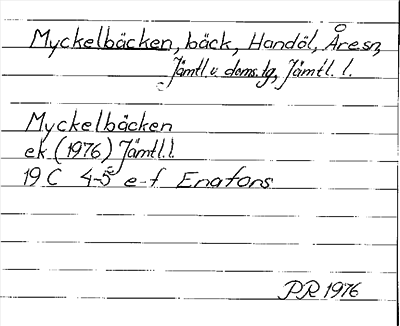 Myckelbäcken, bäck, Handöl, Åresn,
Jämtl. v. doms. tg, Jämtl. l.
Myckelbäcken
ek (1976) Jämtl. l.
19 C 4-5 e-f Enafors
PR 1976